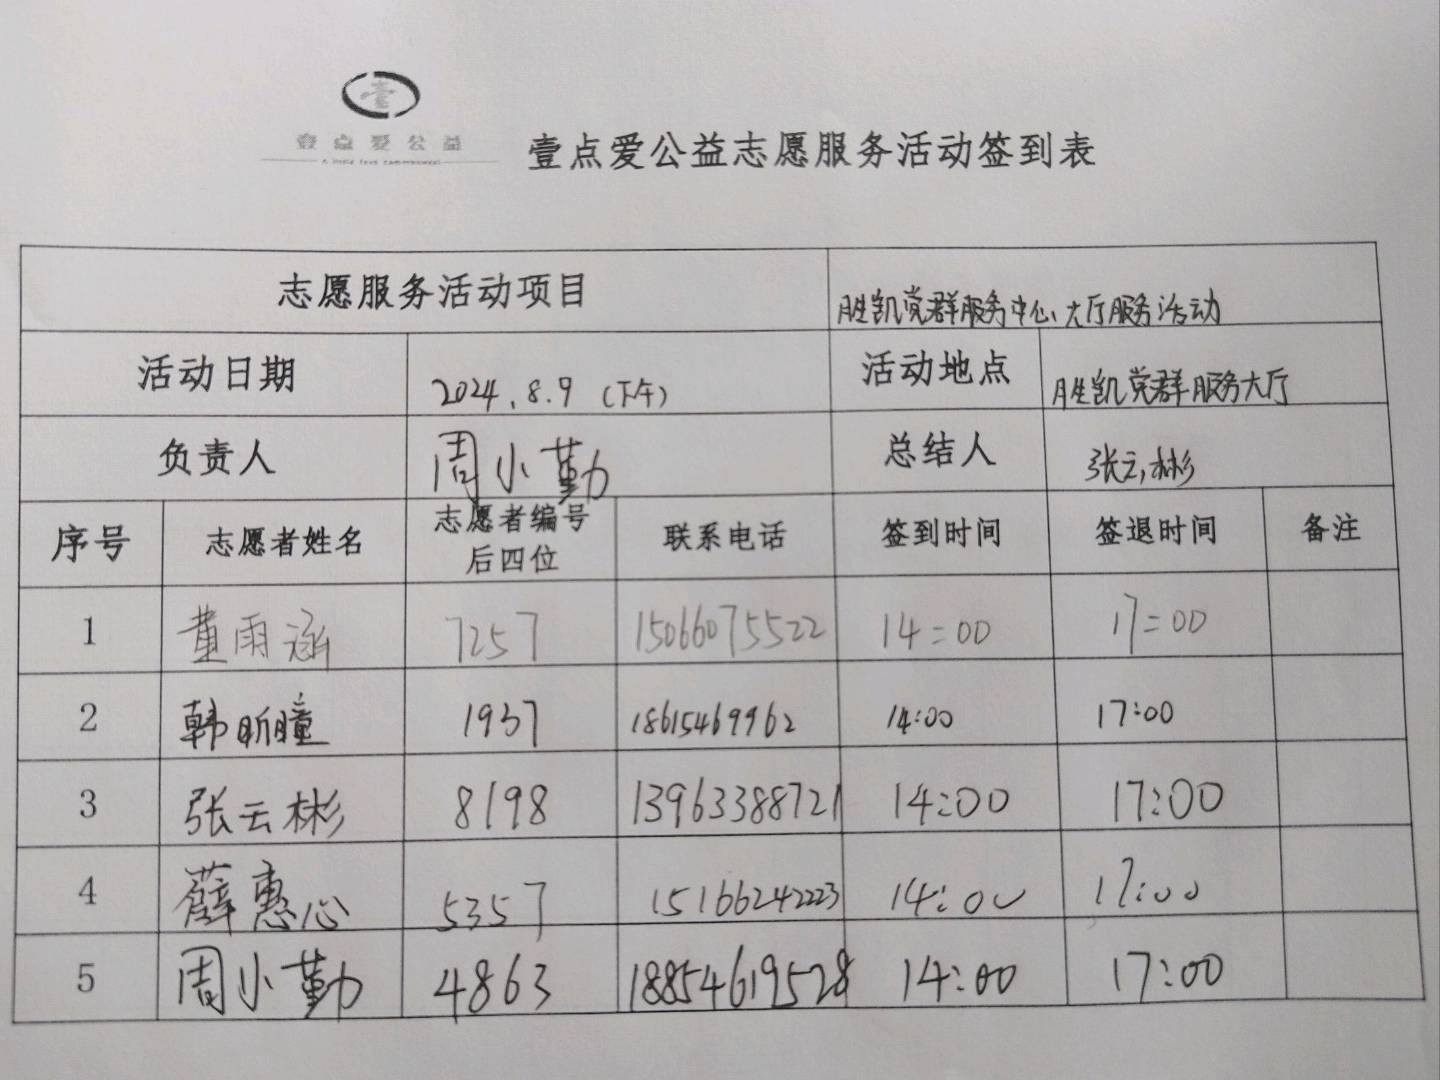 壹点爱公益
壹点爱公益志愿服务活动签到表
志愿服务活动项目 胜凯党群服务中心大厅服务活动
活动日期 2024.8.9（下午） 活动地点 胜凯党群服务大厅
负责人 周小勤 总结人 张云彬
序号 志愿者姓名 志愿者编号 联系电话 签到时间 签退时间 备注
后四位
1 董雨涵 7257 15066075522 14:00 17:00
2 韩昕瞳 1937 18615469962 14:00 17:00
3 张云彬 8198 13963388721 14:00 17:00
4 薛惠心 5357 15166242223 14:00 17:00
5 周小勤 4863 18854619528 14:00 17:00